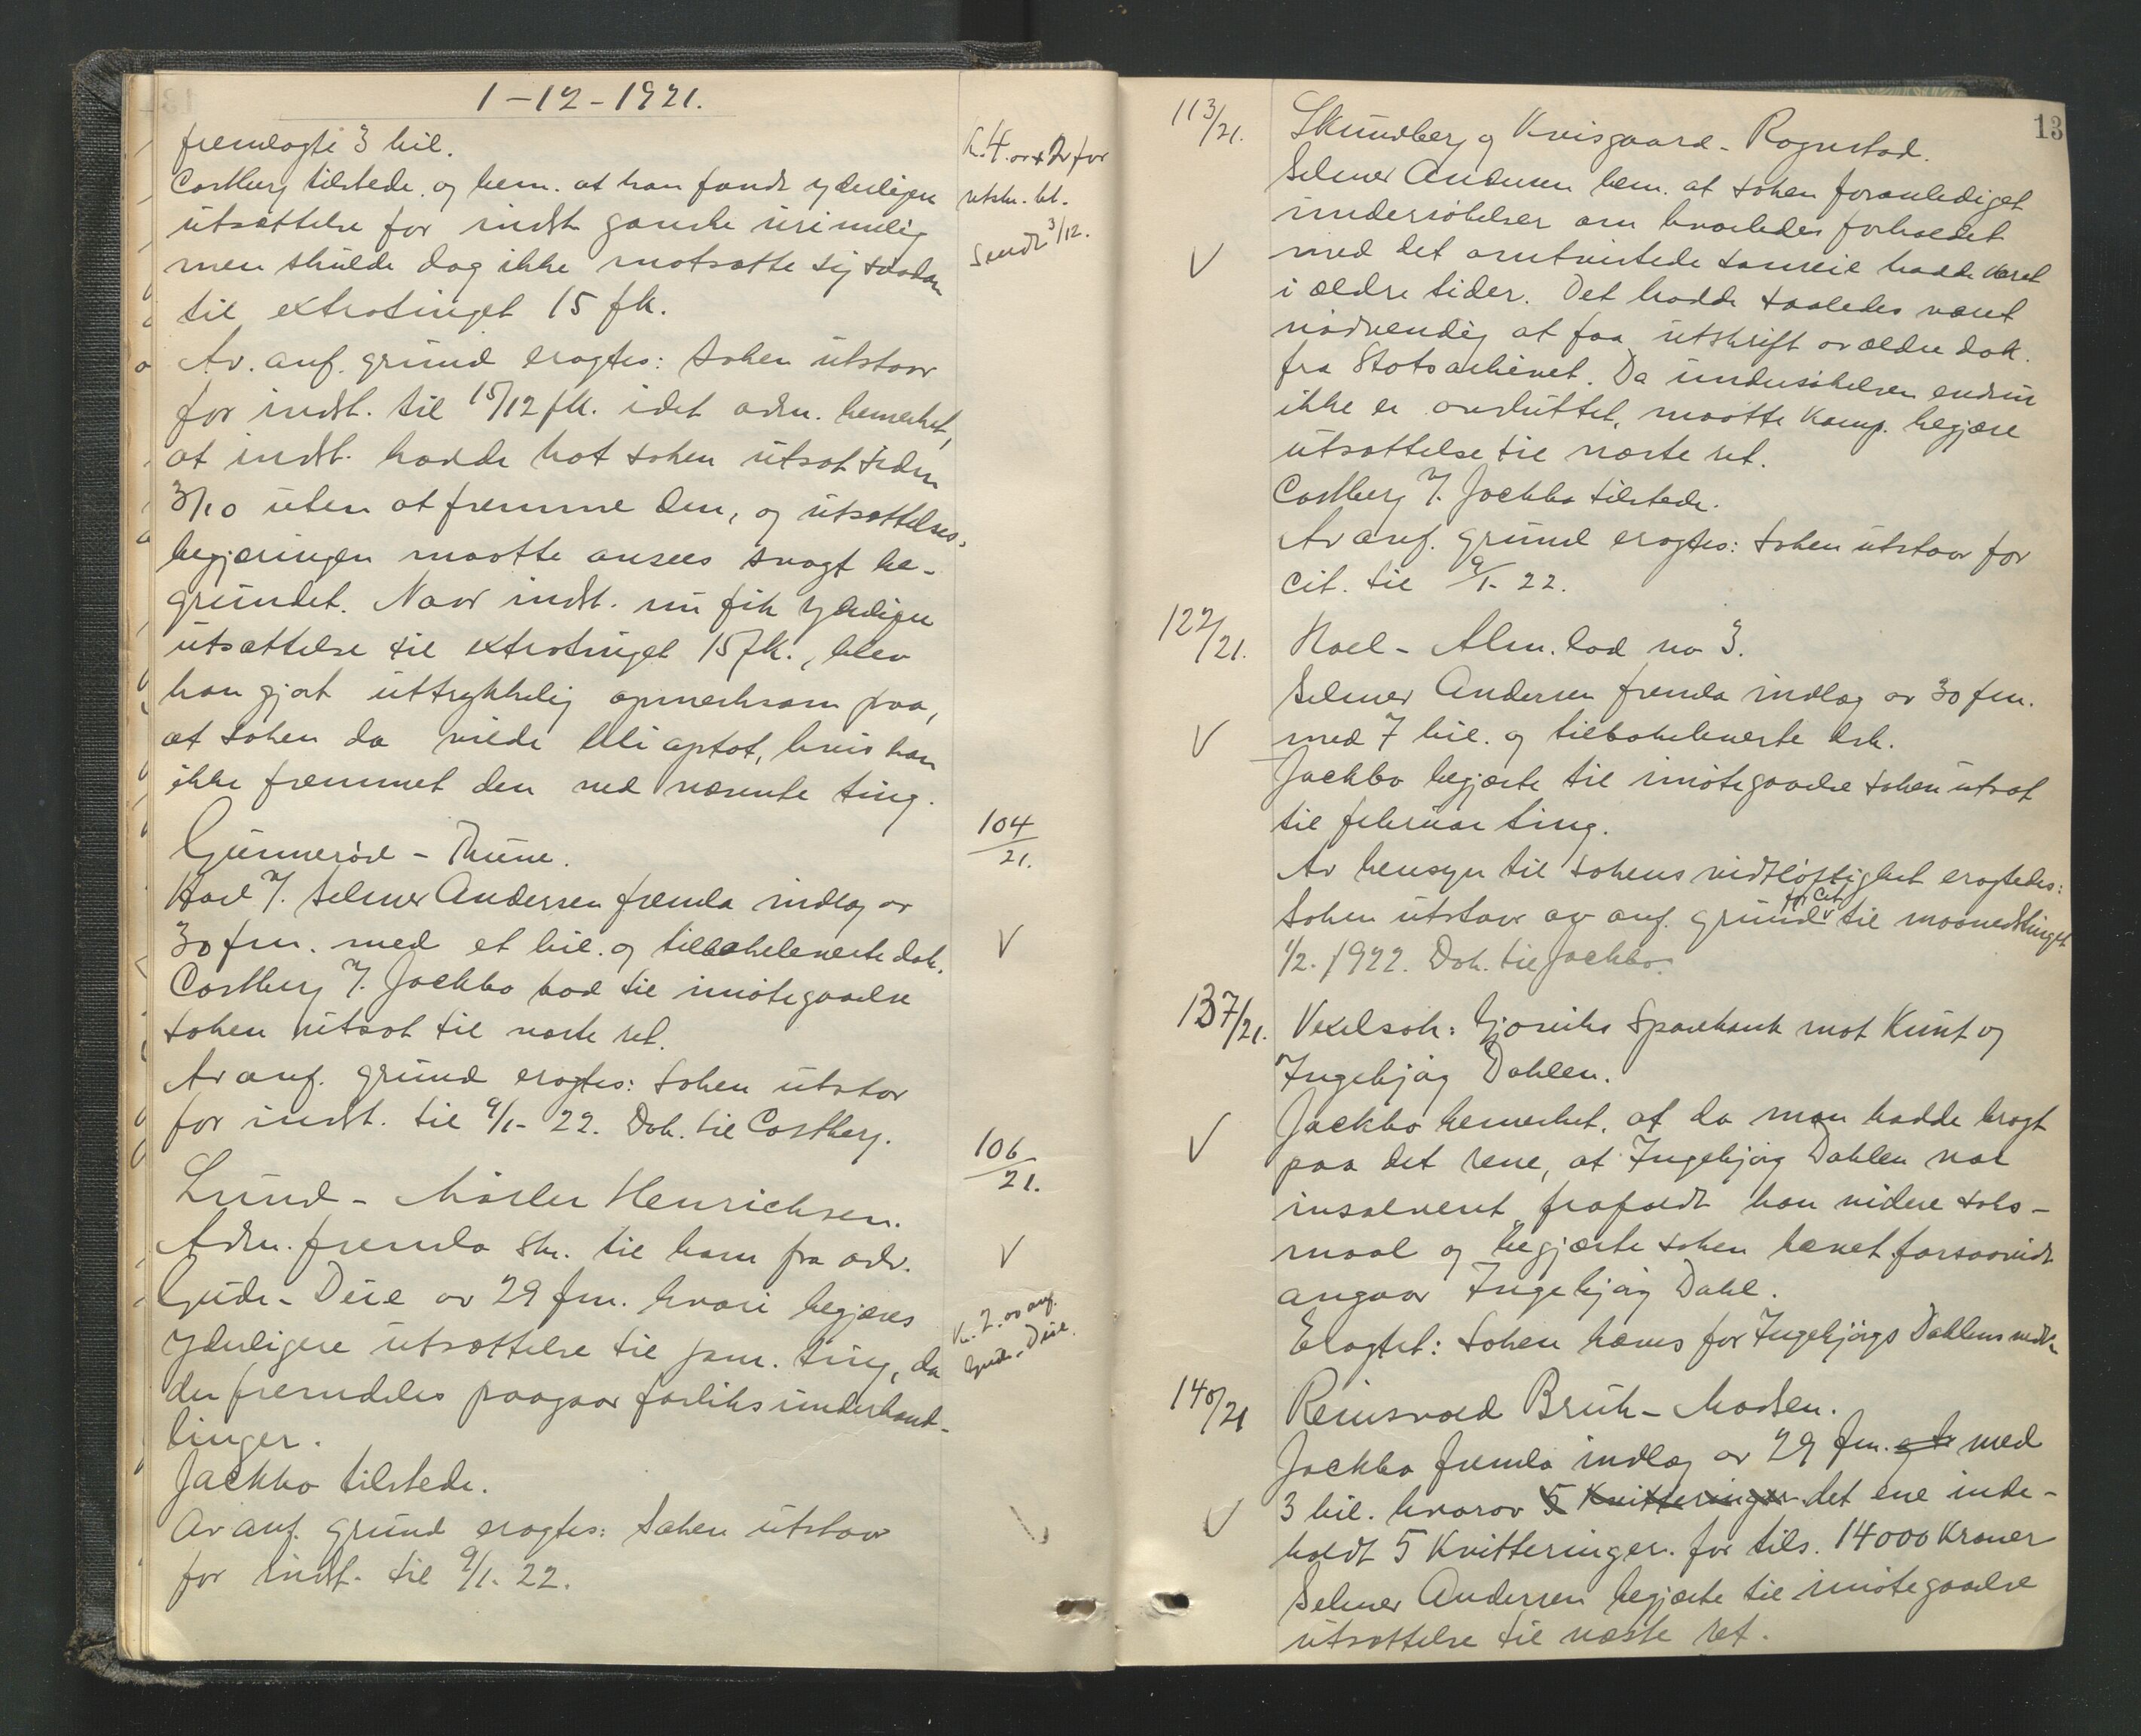 1-12-1921.
fremlagte 3 bil.
Castberg tilstede og bem. at han fandt yderligere
utsættelse for indst. ganske urimelig
men skulde dog ikke motsætte sig saadan
til extratinget 15 fk.
Av. anf. grund eragtes: Saken utstaar
for indst. til 15/12 fk. idet adm. bemerket,
at indst. hadde hat saken utsat siden
3/10 uten at fremme den, og utsættelses-
begjæringen maatte ansees svagt be-
grundet. Naar indst. nu fik yderligere
utsættelse til extratinget 15 fk., blev
han gjort uttrykkelig opmerksom paa,
at saken da vilde bli optat, hvis han
ikke fremmet den ved nævnte ting.
K. 4.00 + 2 for
utskr. bet.
Sendt 3/12.
104/21.
Gunnerød - Thune.
Hael f. Selmer Andersen fremla indlæg av
30 fm. med et bil. og tilbakeleverte dok.
V
Castberg f. Jackbo bad til imøtegaaelse
saken utsat til næste ret.
Av anf. grund eragtes: Saken utstar
for indst. til 9/1- 22. Dok. til Castberg.
106/21.
Lund - Møller Henrichsen.
Adm. fremla skr. til ham fra adv.
V
Gude-Deie av 29 fm. hvori begjæres
yderligere utsættelse til jan. ting, da
K. 2.00 anf.
Gude-Deie.
der fremdeles paagaar forliksunderhand-
linger.
Jackbo tilstede.
Av anf. grund eragtes: Saken utstaar
for indst. til 9/1. 22.
13
113/21.
Skundberg og Kvisgaard - Rognstad.
Selmer Andersen bem. at saken foranlediget
undersøkelser om hvorledes forholdet
V
med det omtvistede sameie hadde været
i ældre tider. Det hadde saaledes været
nødvendig at faa utskrift av ældre dok.
fra Statsarkivet. Da undersøkelsen endnu
ikke er avsluttet, maatte komp. begjære
utsættelse til næste ret.
Castberg f. Jackbo tilstede.
Av anf. grund eragtes: Saken utstaar for
cit. til 9/1- 22.
122/21.
Hoel - Alm. lod no 3.
Selmer Andersen fremla indlæg av 30 fm.
V
med 7 bil. og tilbakeleverte dok.
Jackbo begjærte til imøtegaaelse saken utsat
til februar ting.
Av hensyn til sakens vidtløftighet eragtedes:
Saken utstaar av anf. grund for Cit. til maanedstinget
1/2. 1922. Dok. til Jackbo.
137/21.
Vexelsak: Gjøviks Sparebank mot Knut og
Ingebjørg Dahlen.
V
Jackbo bemerket, at da man hadde bragt
paa det rene, at Ingebjørg Dahlen var
insolvent, frafaldt han videre saks-
maal og begjærte saken hævet forsaavidt
angaar Ingebjørg Dahl.
Eragtet: Saken hæves for Ingebjørgs Dahlens vedk.
140/21
Reinsvold Bruk - Madsen.
Jackbo fremla indlæg av 29 fm. med
V
3 bil. hvorav 5 Kvitteringer det ene inde-
holdt 5 Kvitteringer. for tils. 14000 Kroner
Selmer Andersen begjærte til imøtegaaelse
utsættelse til næste ret.